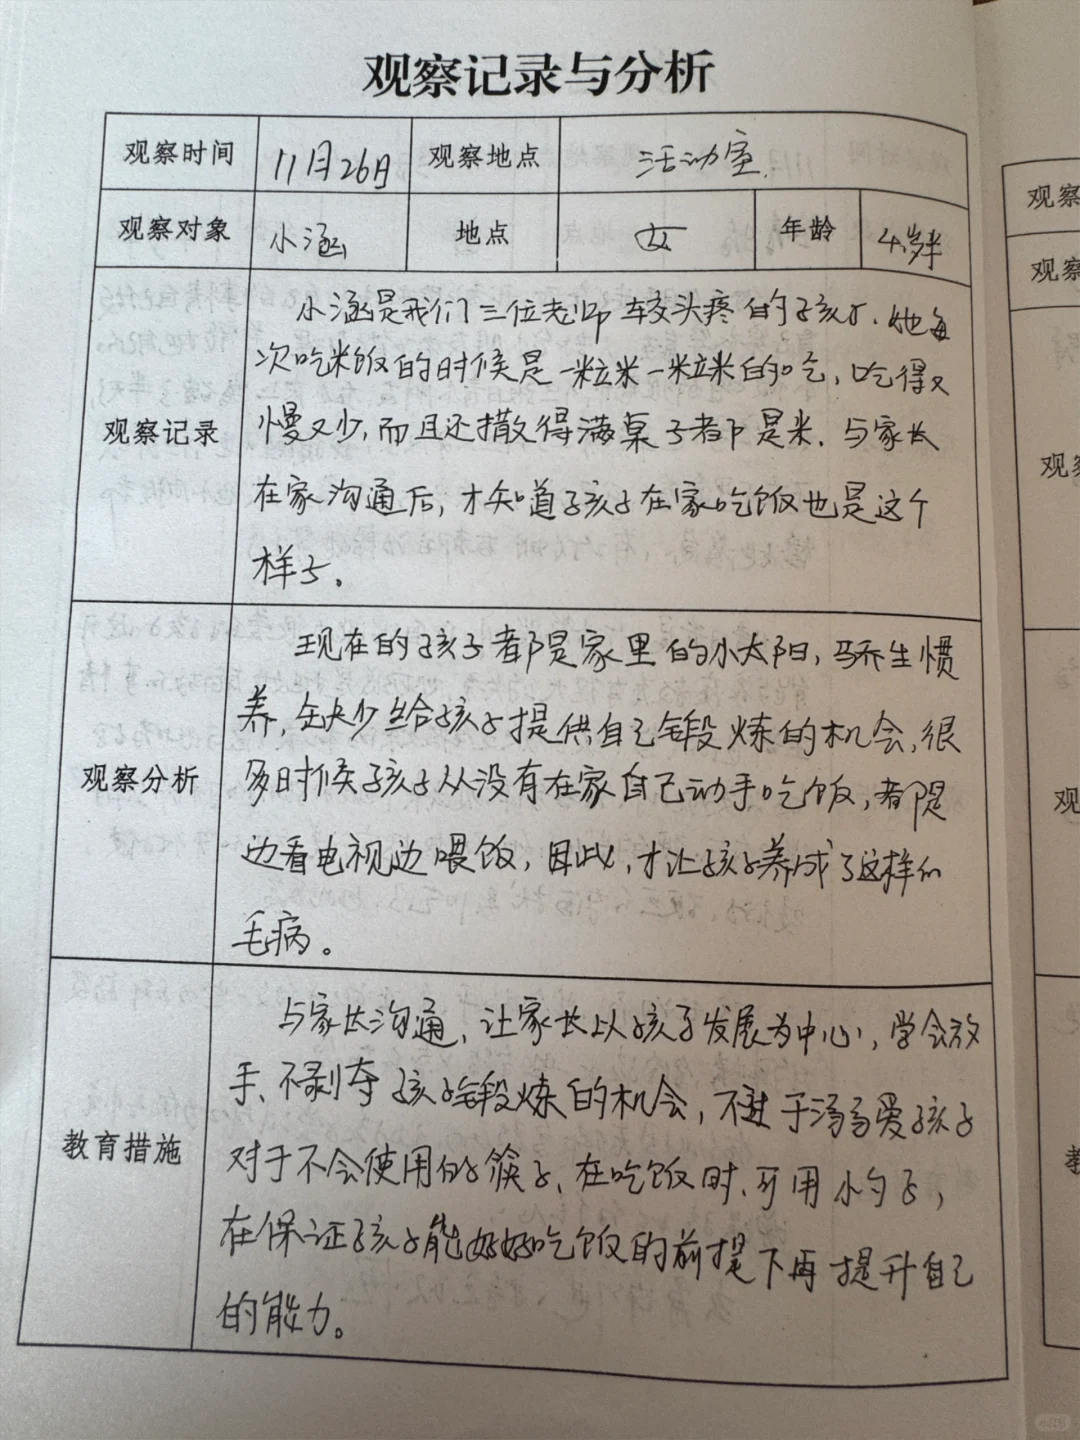 观察记录与分析
观察时间 11月26日 观察地点 活动室.
观察对象 小涵 地点 女 年龄 4岁半
观察记录
小涵是我们三位老师较头疼的孩子.她每
次吃米饭的时候是一粒米一粒米的吃,吃得又
慢又少,而且还撒得满桌子都是米.与家长
在家沟通后,才知道孩子在家吃饭也是这个
样子。
观察分析
现在的孩子都是家里的小太阳,骄生惯
养,缺少给孩子提供自己锻炼的机会,很
多时候孩子从没有在家自己动手吃饭,都是
边看电视边喂饭,因此,才让孩子养成了这样的
毛病。
教育措施
与家长沟通,让家长以孩子发展为中心,学会放
手、不剥夺孩子锻炼的机会,不过于溺爱孩子
对于不会使用的筷子、在吃饭时、可用小勺子,
在保证孩子能好好吃饭的前提下再提升自己
的能力。
观察
观察
观察
观
教
小红书